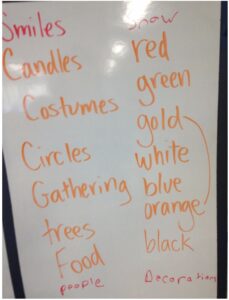 Smiles
Candles
Costumes
Circles
Gathering
trees
Food
people
Snow
red
green
gold
white
blue
orange
black
Decorations